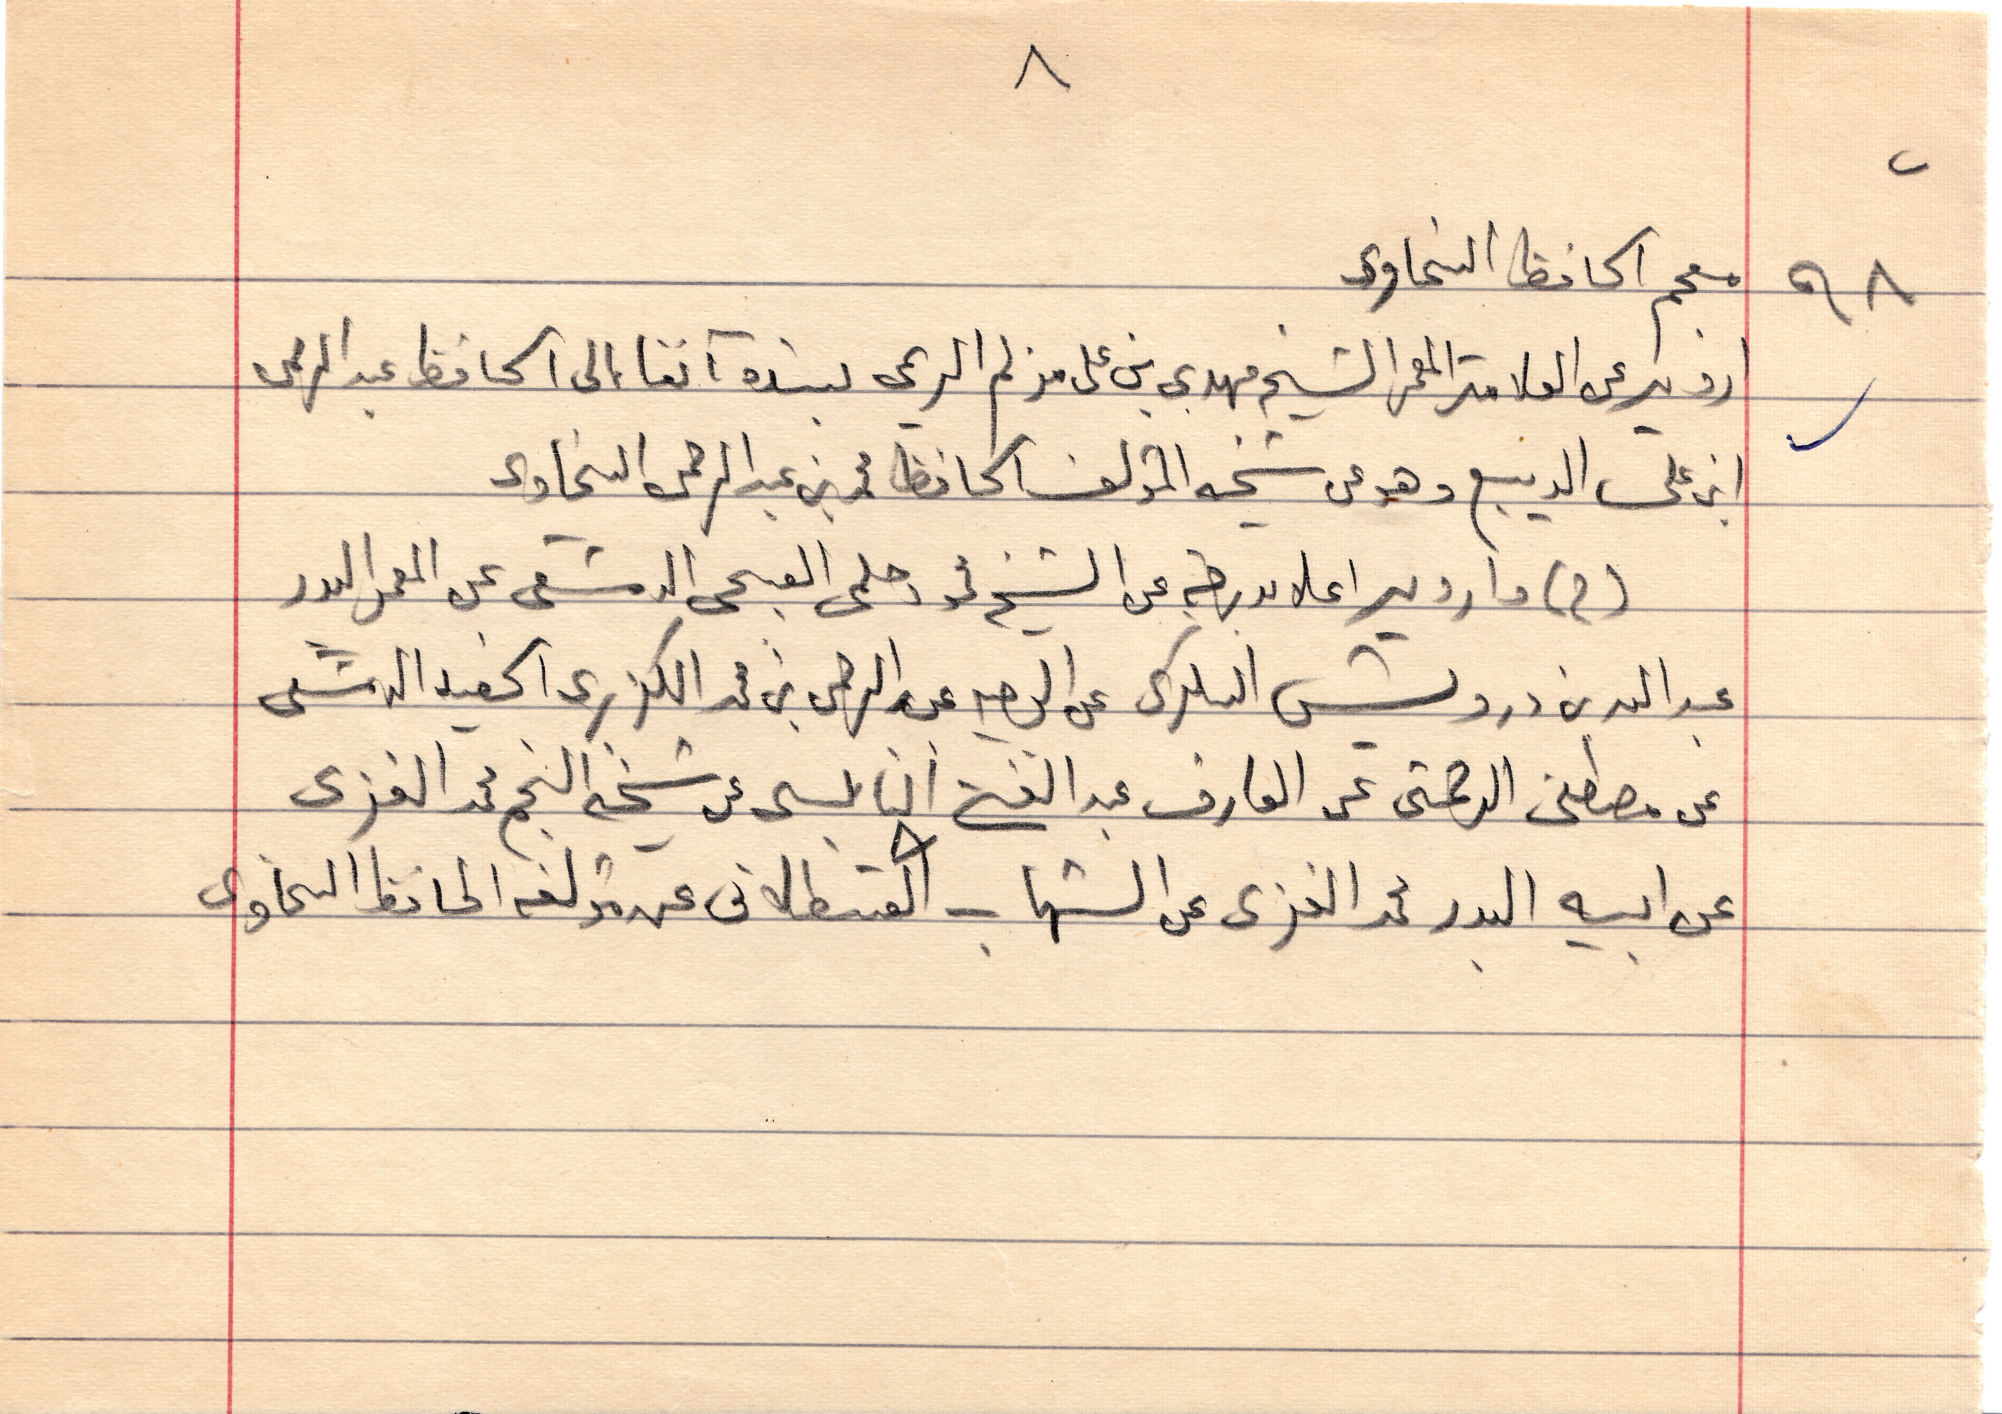 ٨
٩٨ معجم الحافظ السخاوى
ارويه عن العلامة المعمر الشيخ مهدي بن على مزلم الريمى بسنده آنفا الى الحافظ عبد الرحمن
ابن على الديبع وهو عن شيخه المؤلف الحافظ محمد بن عبد الرحمن السخاوى
(ح) وارويه اعلا بدرجة عن الشيخ محمود حلمى الدمشقى عن المعمر البدر
عبد الله بن درويش السكرى عن الوجيه عبد الرحمن بن محمد الكزبرى الحفيد الدمشقى
عن مصطفى الرحمتى عن العارف عبد الغنى النابلسى عن شيخه النجم محمد الغزى
عن ابيه البدر محمد الغزى عن الشهاب القسطلانى عن مؤلفه الحافظ السخاوى